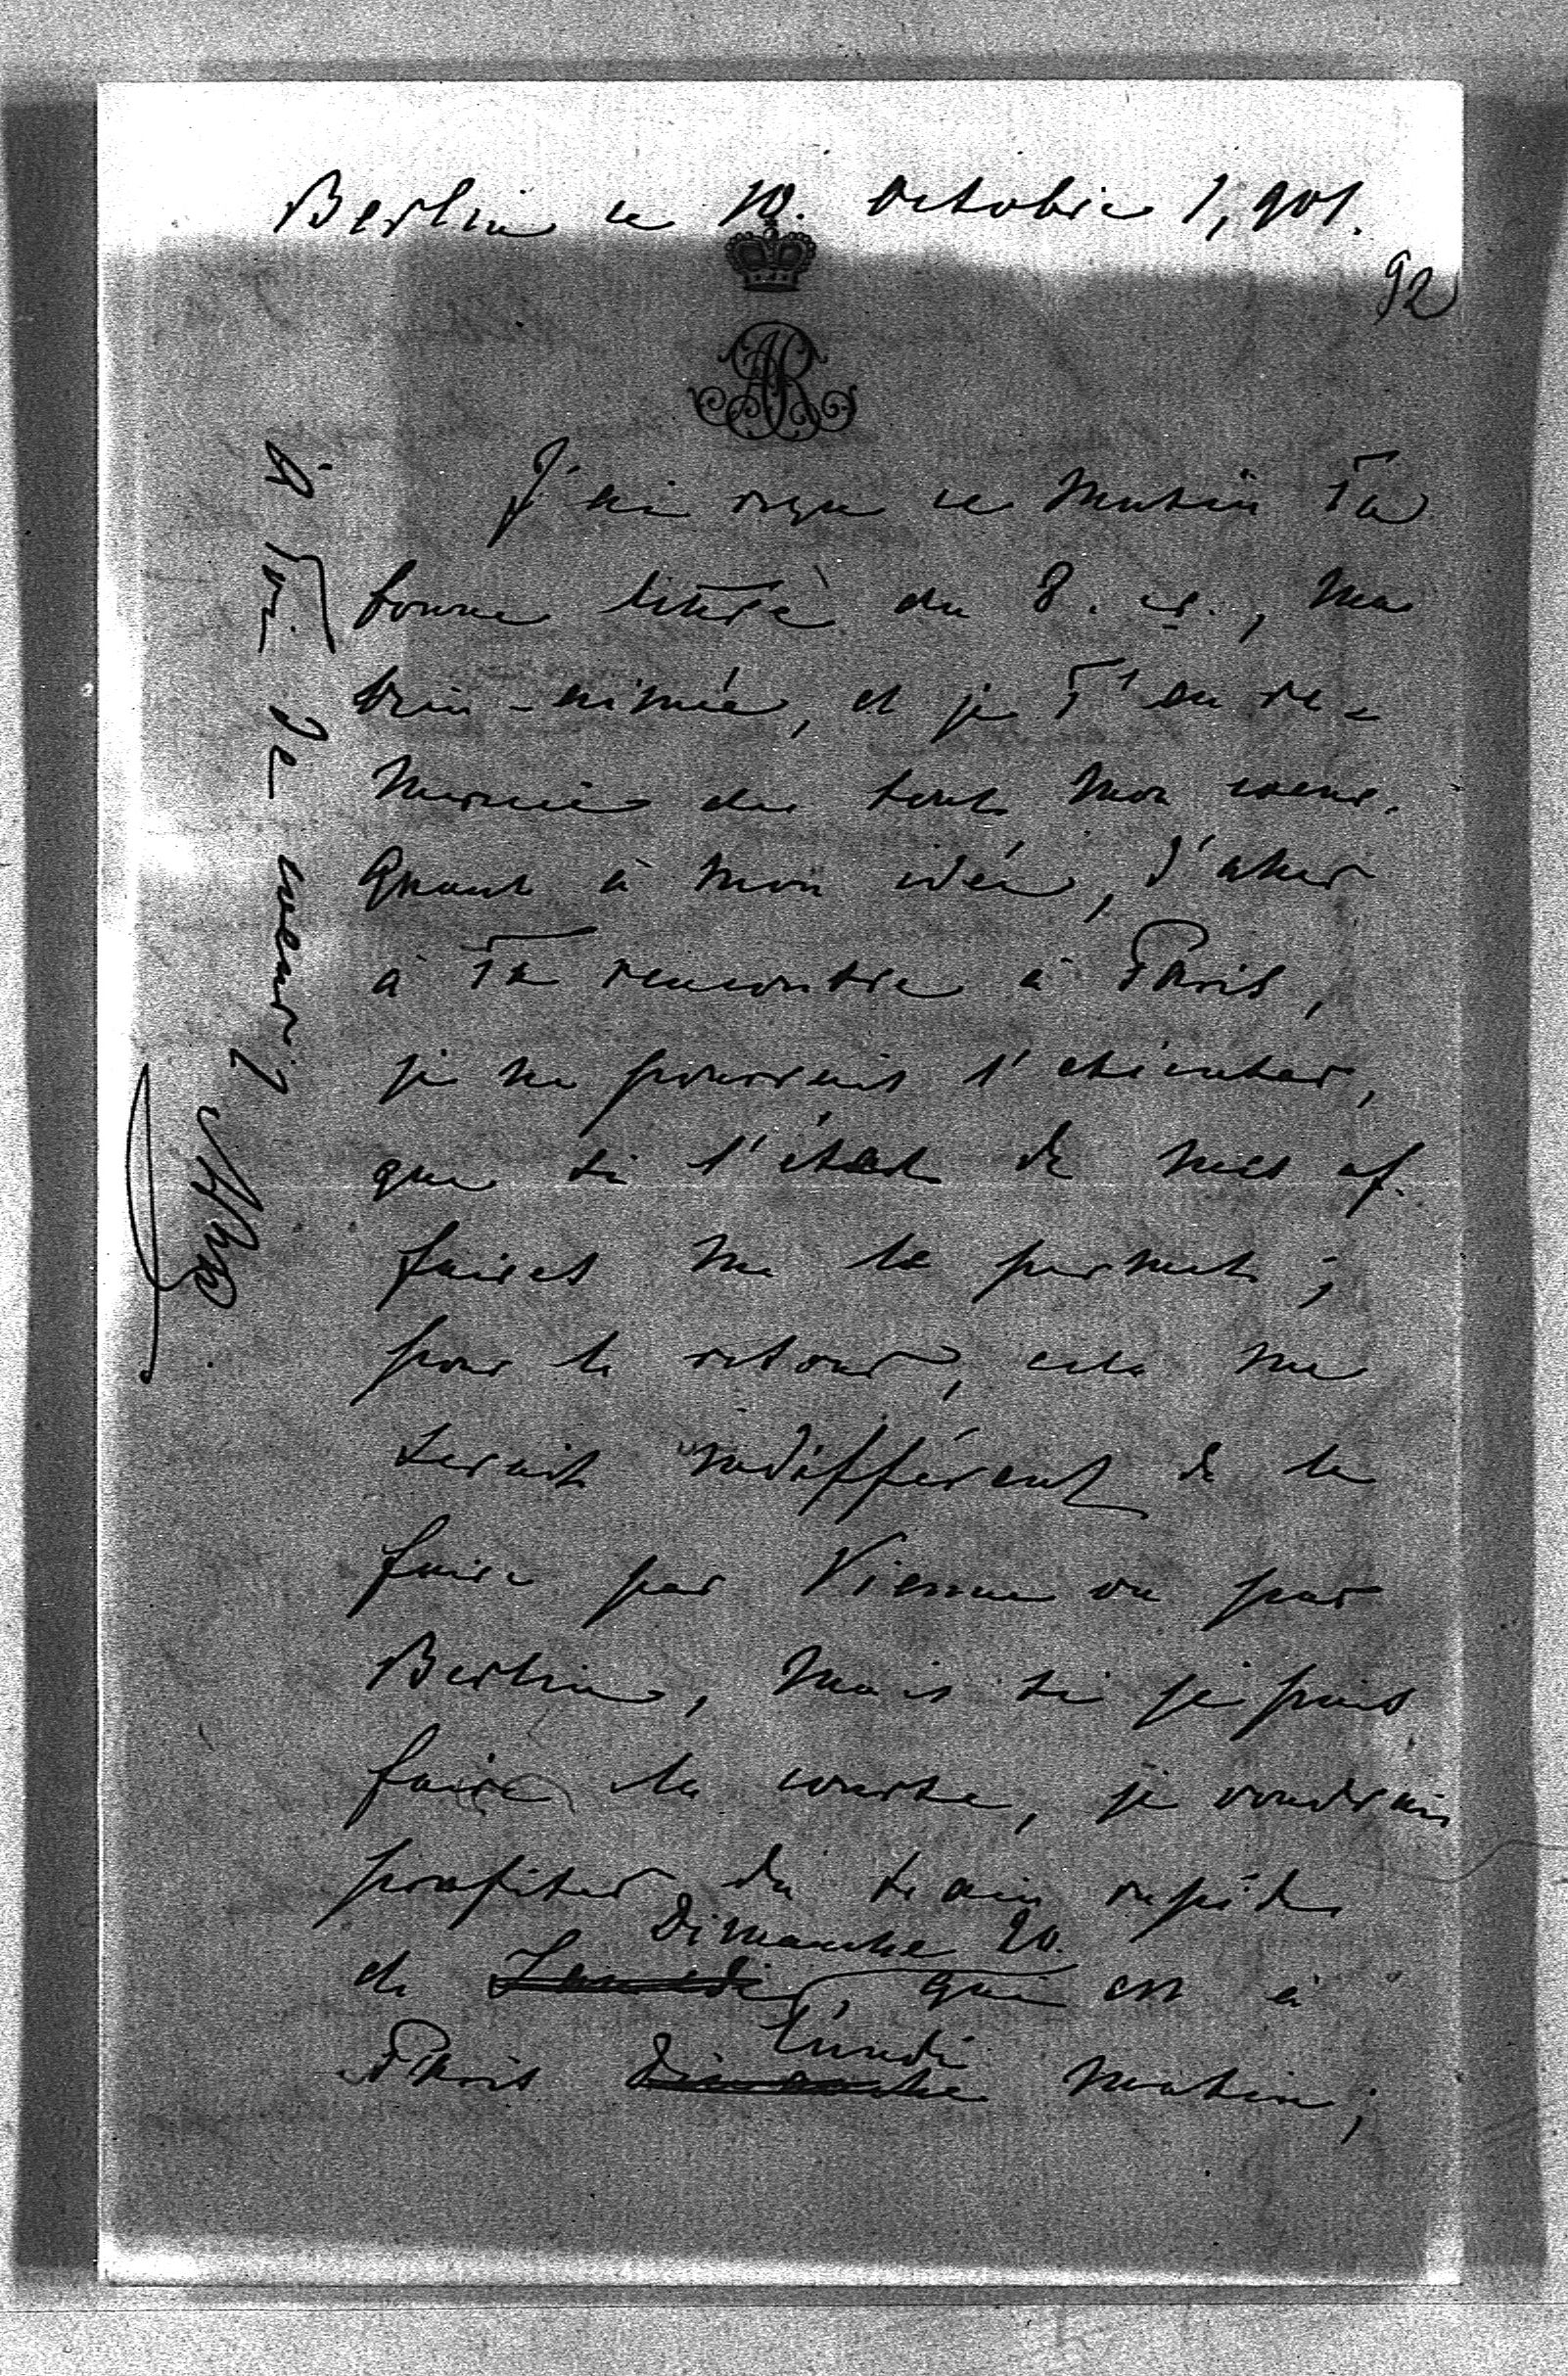 Berlin ce 10. Octobre 1,901.
92
AR
J'ai reçu ce matin Ta
bonne lettre du 8. cr., ma
bien-aimée, et je T'en re-
mercie de tout mon coeur.
Quant à mon idée, d'aller
à Ta rencontre à Paris,
je ne pourrais l'exécuter,
que si l'état de mes af-
faires me le permet;
pour le retour, cela me
serait indifférent de le
faire par Vienne ou par
Berlin, mais si je puis
faire la course, je voudrais
profiter du train rapide
Dimanche 20.
de Samedi, qui est à
Lundi
Paris dimanche matin;
à Toi de coeur!